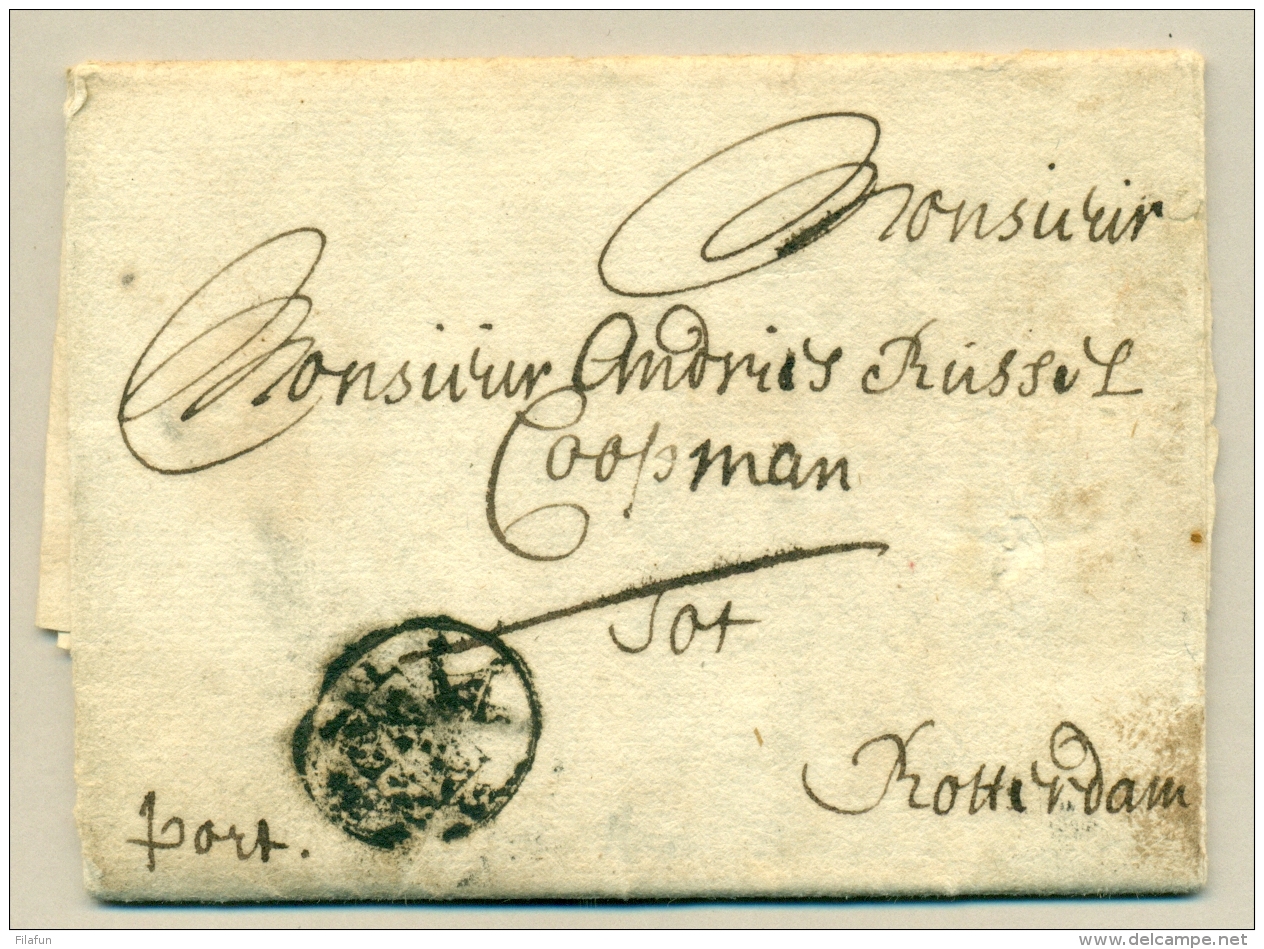 Monsieuir
Monsieur Andries Russel
Coopman
Tot
Rotterdam
port.
Filafun
www.delcampe.net